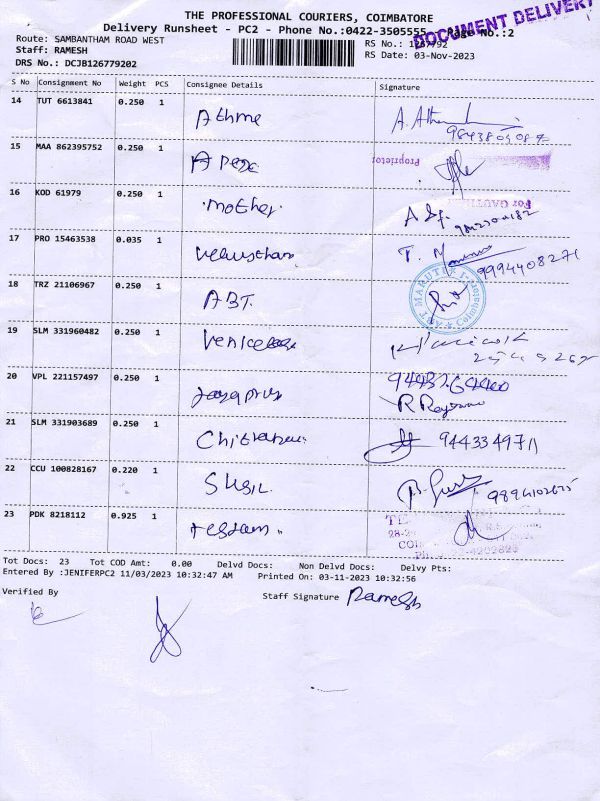 THE PROFESSIONAL COURIERS, COIMBATORE
DOCUMENT DELIVERY
Delivery Runsheet - PC2 - Phone No.:0422-3505555 Page No.:2
Route: SAMBANTHAM ROAD WEST RS No.: 1267792
Staff: RAMESH RS Date: 03-Nov-2023
DRS No.: DCJB126779202
S No Consignment No Weight PCS Consignee Details Signature
14 TUT 6613841 0.250 1 Athme
15 MAA 862395752 0.250 1 Apex Proprietor
16 KOD 61979 0.250 1 mother For
17 PRO 15463538 0.035 1 9994408271
18 TRZ 21106967 0.250 1 ABT. Coimbatore
19 SLM 331960482 0.250 1
20 VPL 221157497 0.250 1
21 SLM 331903689 0.250 1 944334971
22 CCU 100828167 0.220 1 SUSIL
23 PDK 8218112 0.925 1
Tot Docs: 23 Tot COD Amt: 0.00 Delvd Docs: Non Delvd Docs: Delvy Pts:
Entered By :JENIFERPC2 11/03/2023 10:32:47 AM Printed On: 03-11-2023 10:32:56
Verified By Staff Signature Ramesh